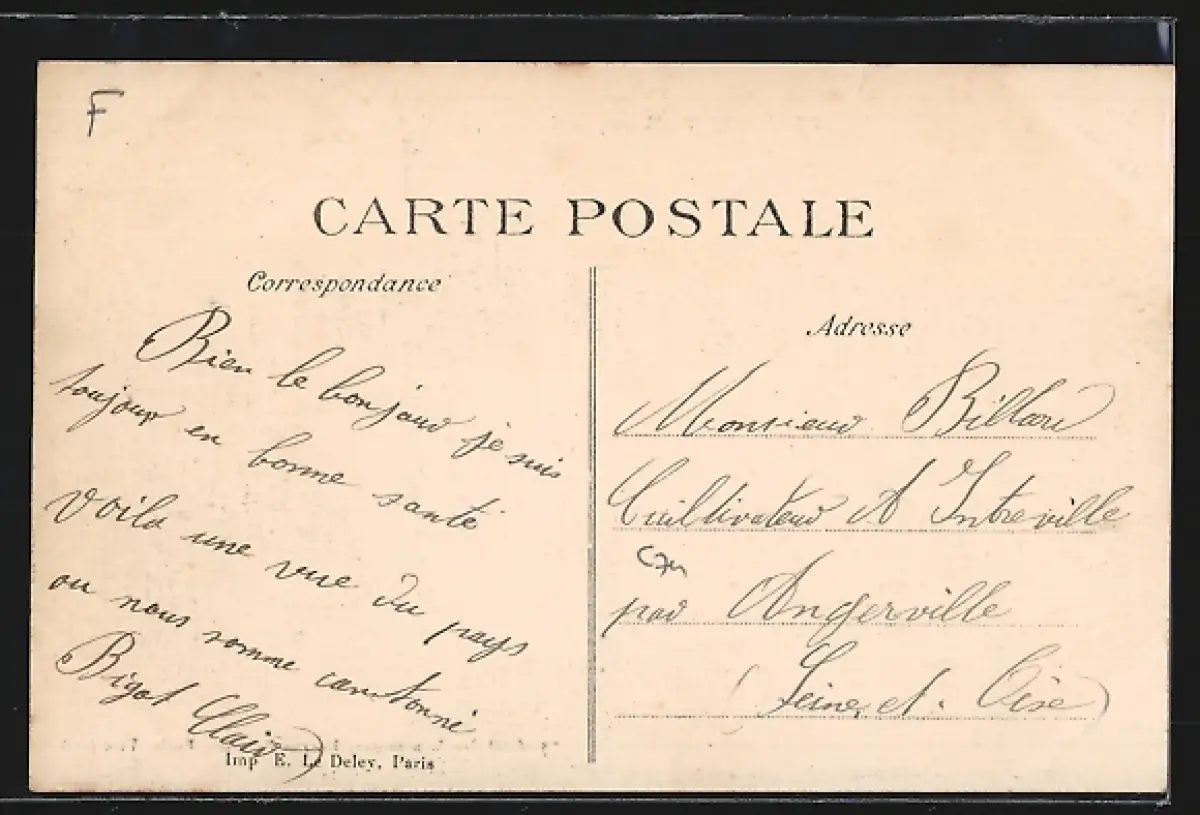 F
CARTE POSTALE
Correspondance
Bien le bonjour je suis
toujour en bonne santé
Voila une vue du pays
ou nous somme cantonné
Bigot Clair
Imp E. Le Deley, Paris
Adresse
Monsieur Billard
Cuiltivateur A Intreville
par Angerville
(Seine et. Oise)